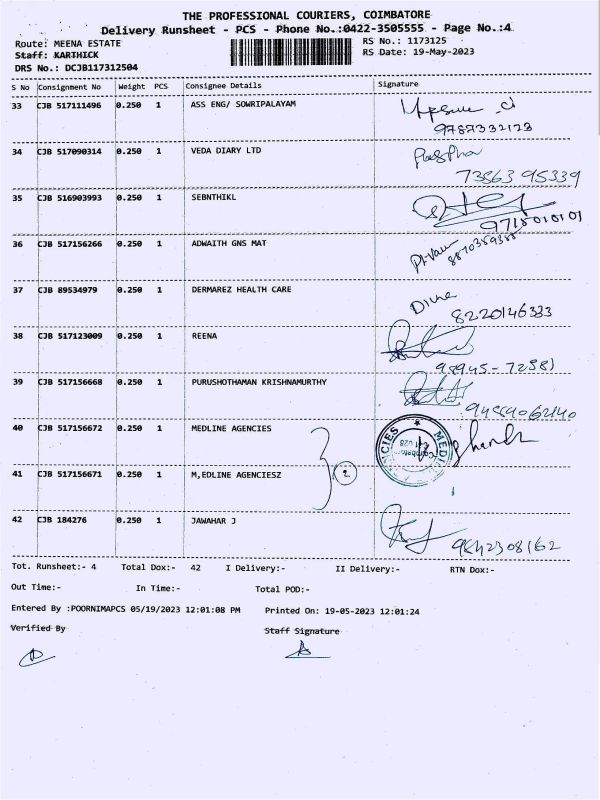 THE PROFESSIONAL COURIERS, COIMBATORE
Delivery Runsheet - PCS - Phone No.:0422-3505555 - Page No.:4
Route: MEENA ESTATE
RS No.: 1173125
Staff: KARTHICK
RS Date: 19-May-2023
DRS No.: DCJB117312504
S No Consignment No Weight PCS Consignee Details Signature
33 CJB 517111496 0.250 1 ASS ENG/ SOWRIPALAYAM
9787332123
34 CJB 517090314 0.250 1 VEDA DIARY LTD
73563 95339
35 CJB 516903993 0.250 1 SEBNTHIKL
9715010101
36 CJB 517156266 0.250 1 ADWAITH GNS MAT
37 CJB 89534979 0.250 1 DERMAREZ HEALTH CARE
8220146333
38 CJB 517123009 0.250 1 REENA
98945-72381
39 CJB 517156668 0.250 1 PURUSHOTHAMAN KRISHNAMURTHY
40 CJB 517156672 0.250 1 MEDLINE AGENCIES
41 CJB 517156671 0.250 1 M,EDLINE AGENCIESZ
2
42 CJB 184276 0.250 1 JAWAHAR J
9842308162
Tot. Runsheet:- 4 Total Dox:- 42 I Delivery:- II Delivery:- RTN Dox:-
Out Time:- In Time:- Total POD:-
Entered By :POORNIMAPCS 05/19/2023 12:01:08 PM Printed On: 19-05-2023 12:01:24
Verified By Staff Signature